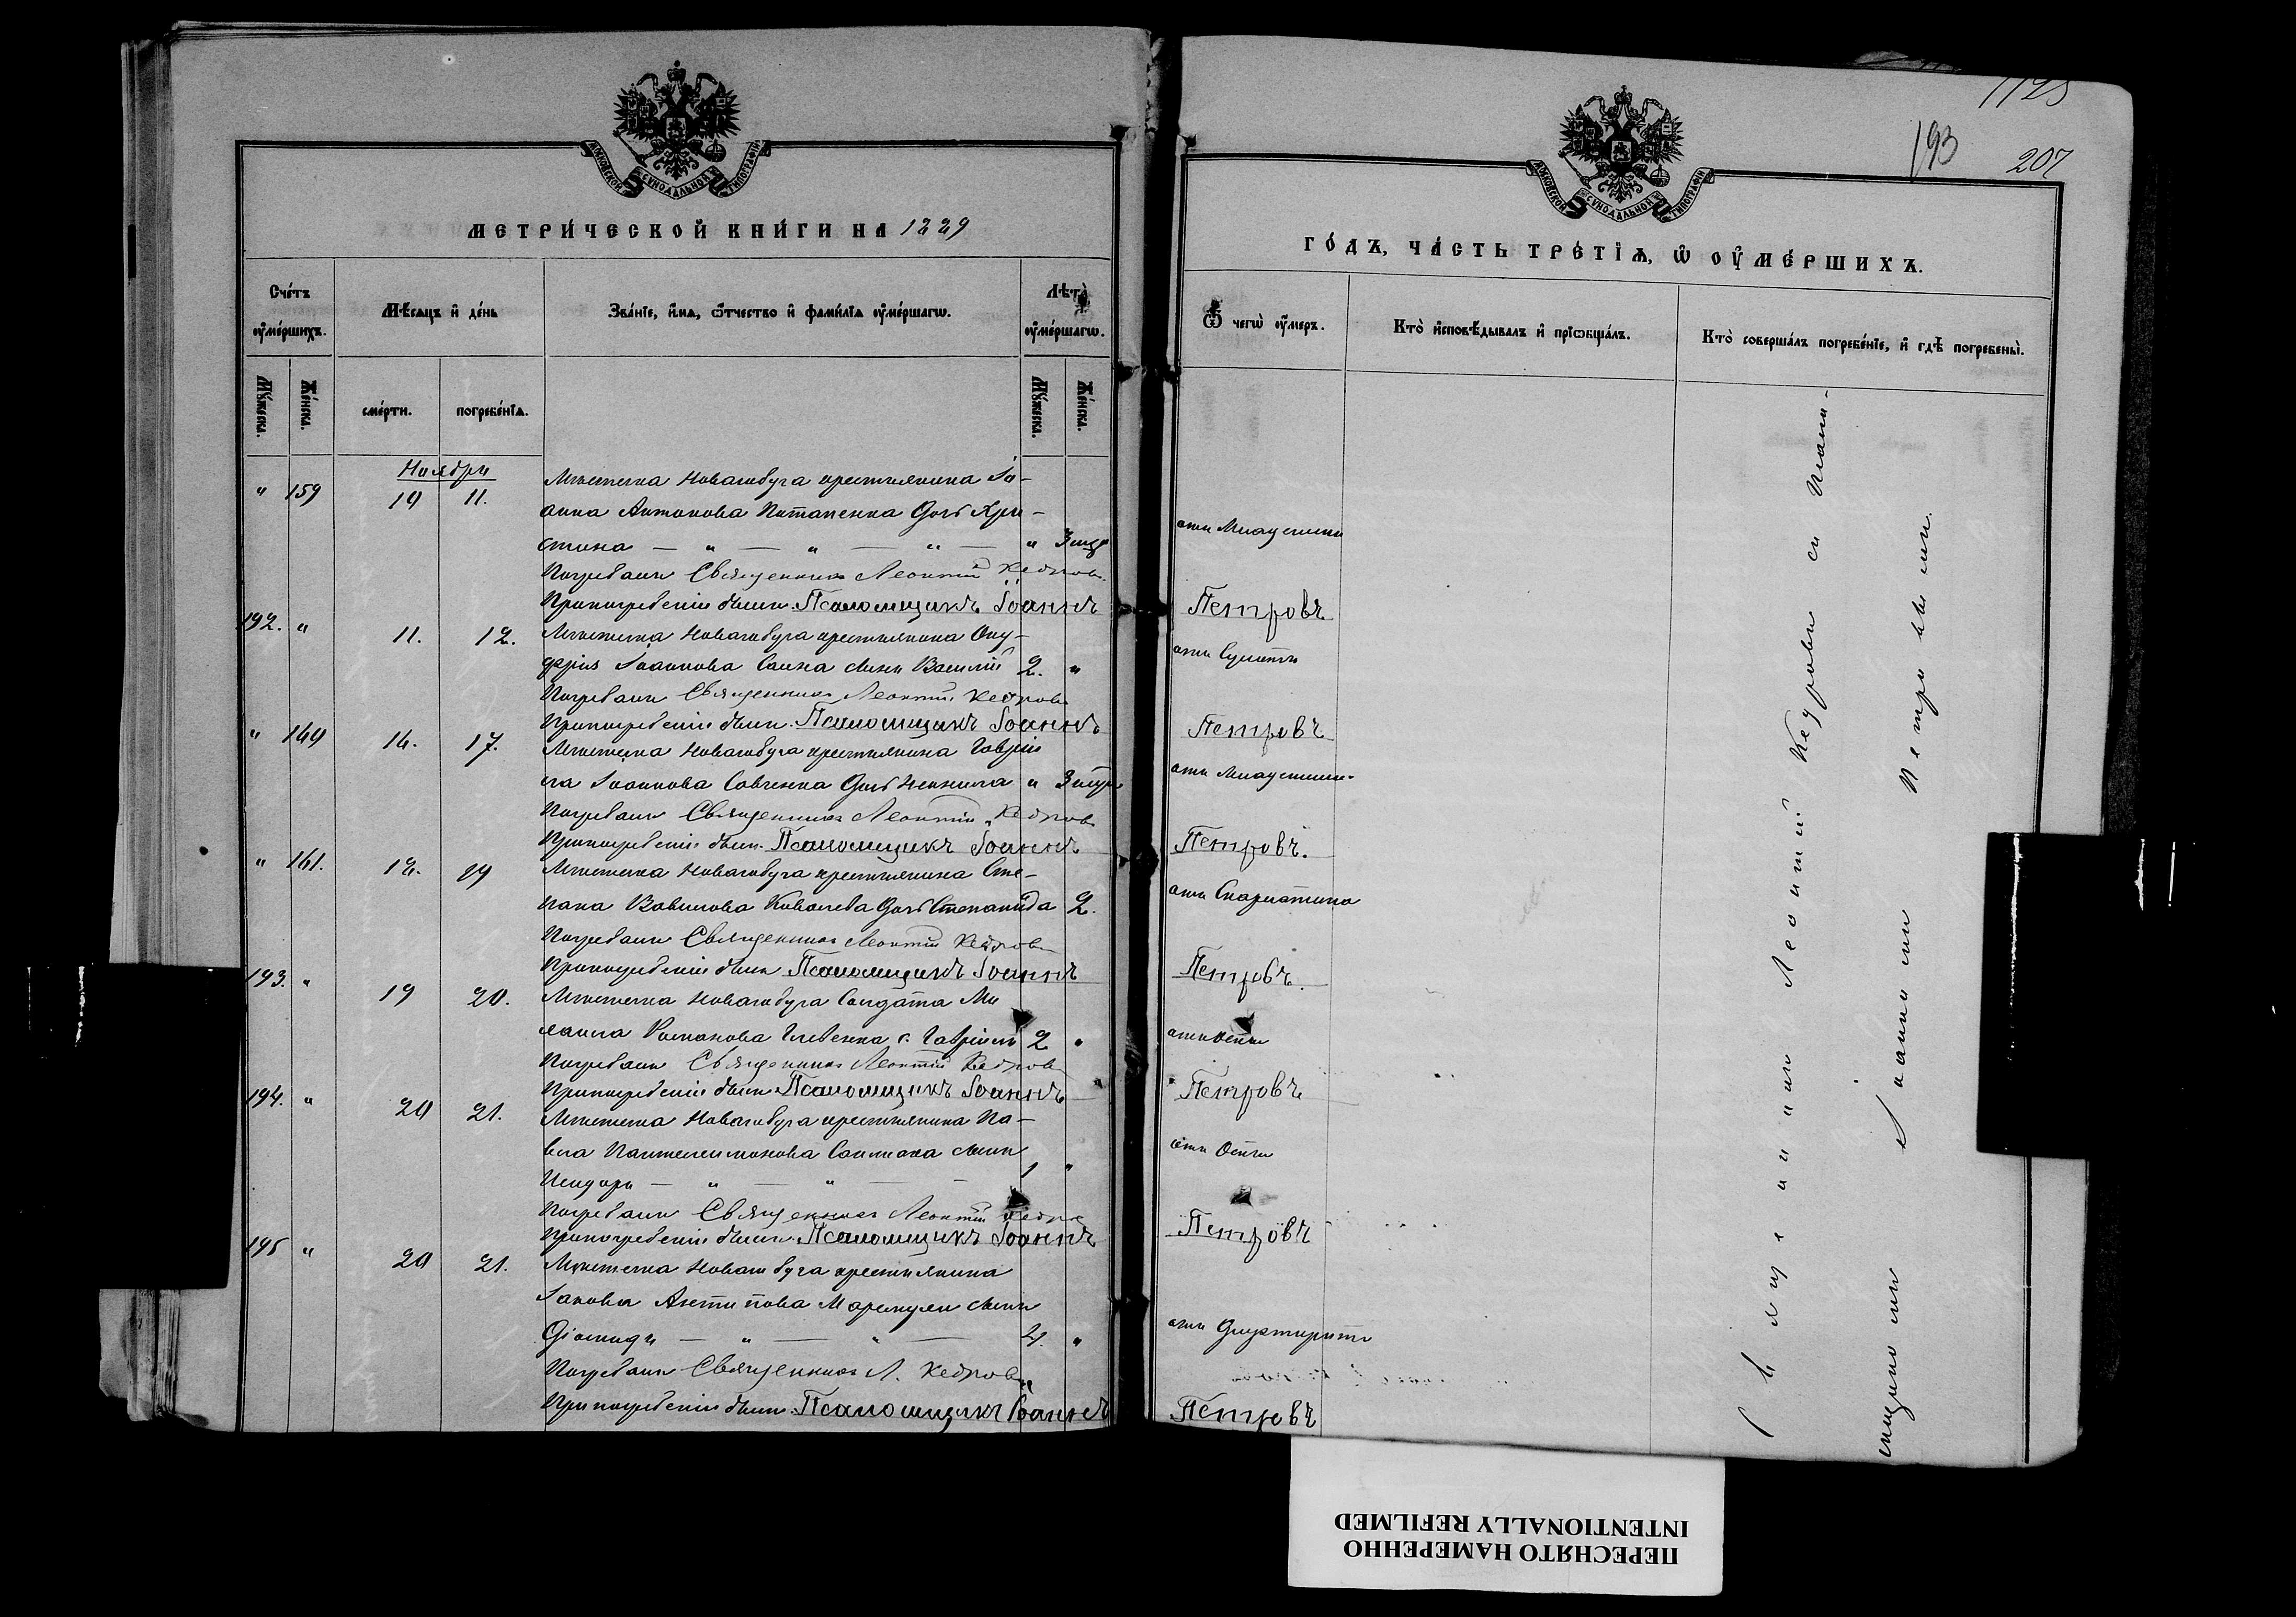 МОСКОВСКОЙ СѴНОДАЛЬНОЙ ТИПОГРАФІИ
МЕТРИ́ЧЕСКОЙ КНИ́ГИ НА 1889
Сче́тъ ᲂу҆ме́ршихъ.
Мѣ́сяцъ и҆ де́нь
Зва́нїе, и҆́мя, ѻ҆́тчество и҆ фами́лїя ᲂу҆ме́ршагѡ.
Лѣ́та ᲂу҆ме́ршагѡ.
Мꙋ́жеска.
Же́нска.
сме́рти.
погребе́нїѧ.
Мꙋ́жеска.
Же́нска.
Ноября
" 159 10 11. Мѣстечка Новагобуга крестьянина Іо-
анна Антонова Потапенка дочь Хри-
стина — " — " — " — "
Погребалъ Священникъ Леонтій Кедровъ
При погребеніи былъ Псаломщикъ Іоаннъ
192. " 11. 12. Мѣстечка Новагобуга крестьянина
Іоаннова сынъ Василій 2. "
Погребалъ Священникъ Леонтій Кедровъ
При погребеніи былъ Псаломщикъ Іоаннъ
" 160 16. 17. Мѣстечка Новагобуга крестьянина Гавріи
ла Іоаннова Савченка дочь "
Погребалъ Священникъ Леонтій Кедровъ
При погребеніи былъ Псаломщикъ Іоаннъ
" 161. 18. 19 Мѣстечка Новагобуга крестьянина Сте-
пана Вавилова Ковалева дочь Степанида 2.
Погребалъ Священникъ Леонтій Кедровъ
При погребеніи былъ Псаломщикъ Іоаннъ
193. " 19 20. Мѣстечка Новагобуга Солдата Ми
хаила Романова с. Гавріилъ 2 "
Погребалъ Священникъ Леонтій Кедровъ
При погребеніи былъ Псаломщикъ Іоаннъ
194. " 20 21. Мѣстечка Новагобуга крестьянина Па-
вла Пантелеимонова сынъ
Исидоръ — " — " — 1 "
Погребалъ Священникъ Леонтій Кедро
При погребеніи былъ Псаломщикъ Іоаннъ
195 " 20 21. Мѣстечка Новагобуга крестьянина
Іакова Антипова сынъ
Діомидъ — " — " — 4. "
Погребалъ Священникъ Л. Кедровъ
При погребеніи былъ Псаломщикъ Іоаннъ
1125
193
207
МОСКОВСКОЙ СѴНОДАЛЬНОЙ ТИПОГРАФІИ
ГО́ДЪ, ЧА́СТЬ ТРЕ́ТІѦ, Ѡ҆ ОУ҆МЕ́РШИХЪ.
Ѿ чегѡ̀ ᲂу҆́меръ.
Кто̀ и҆сповѣ́дывалъ и҆ прїѡбща́лъ.
Кто̀ соверша́лъ погребе́нїе, и҆ гдѣ̀ погребены̀.
отъ Младенчес
Петровъ
отъ Сухотъ
Петровъ
отъ Младенчес
Петровъ.
отъ Скарлатина
Петровъ.
отъ Оспы
Петровъ
отъ Оспы
Петровъ
отъ Дифтерита
Петровъ
Священникъ Леонтій Кедровъ съ Псалом-
щикомъ Іоанномъ Петровымъ.
ПЕРЕСНЯТО НАМЕРЕННО
INTENTIONALLY REFILMED